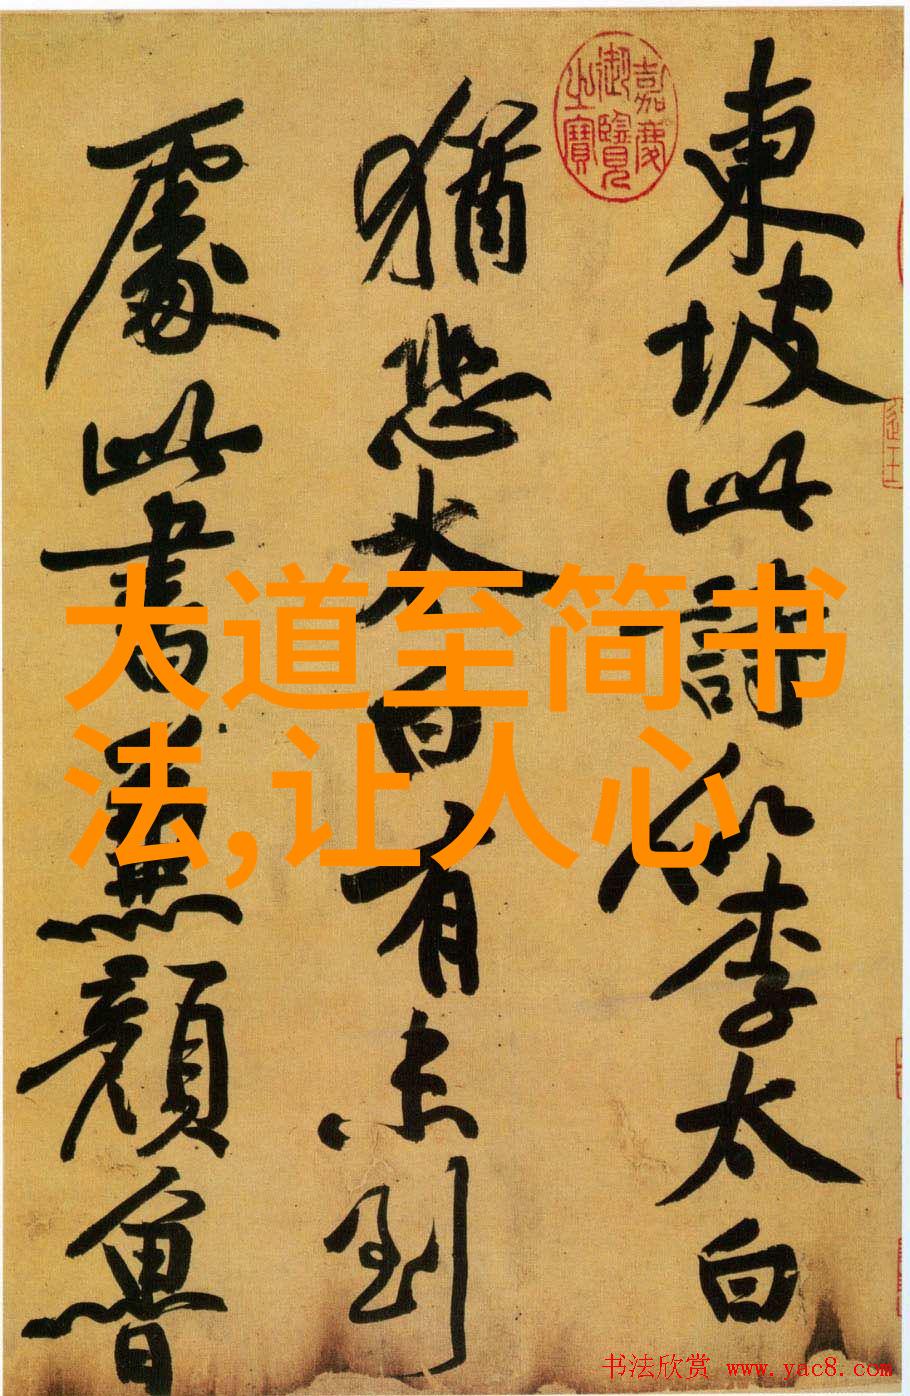 東坡此詩似李太白
猶恐太白有未到
處此書兼顏魯
嘉慶御覽之寶
大道至简书
法,让人心
书法欣赏 www.yac8.com